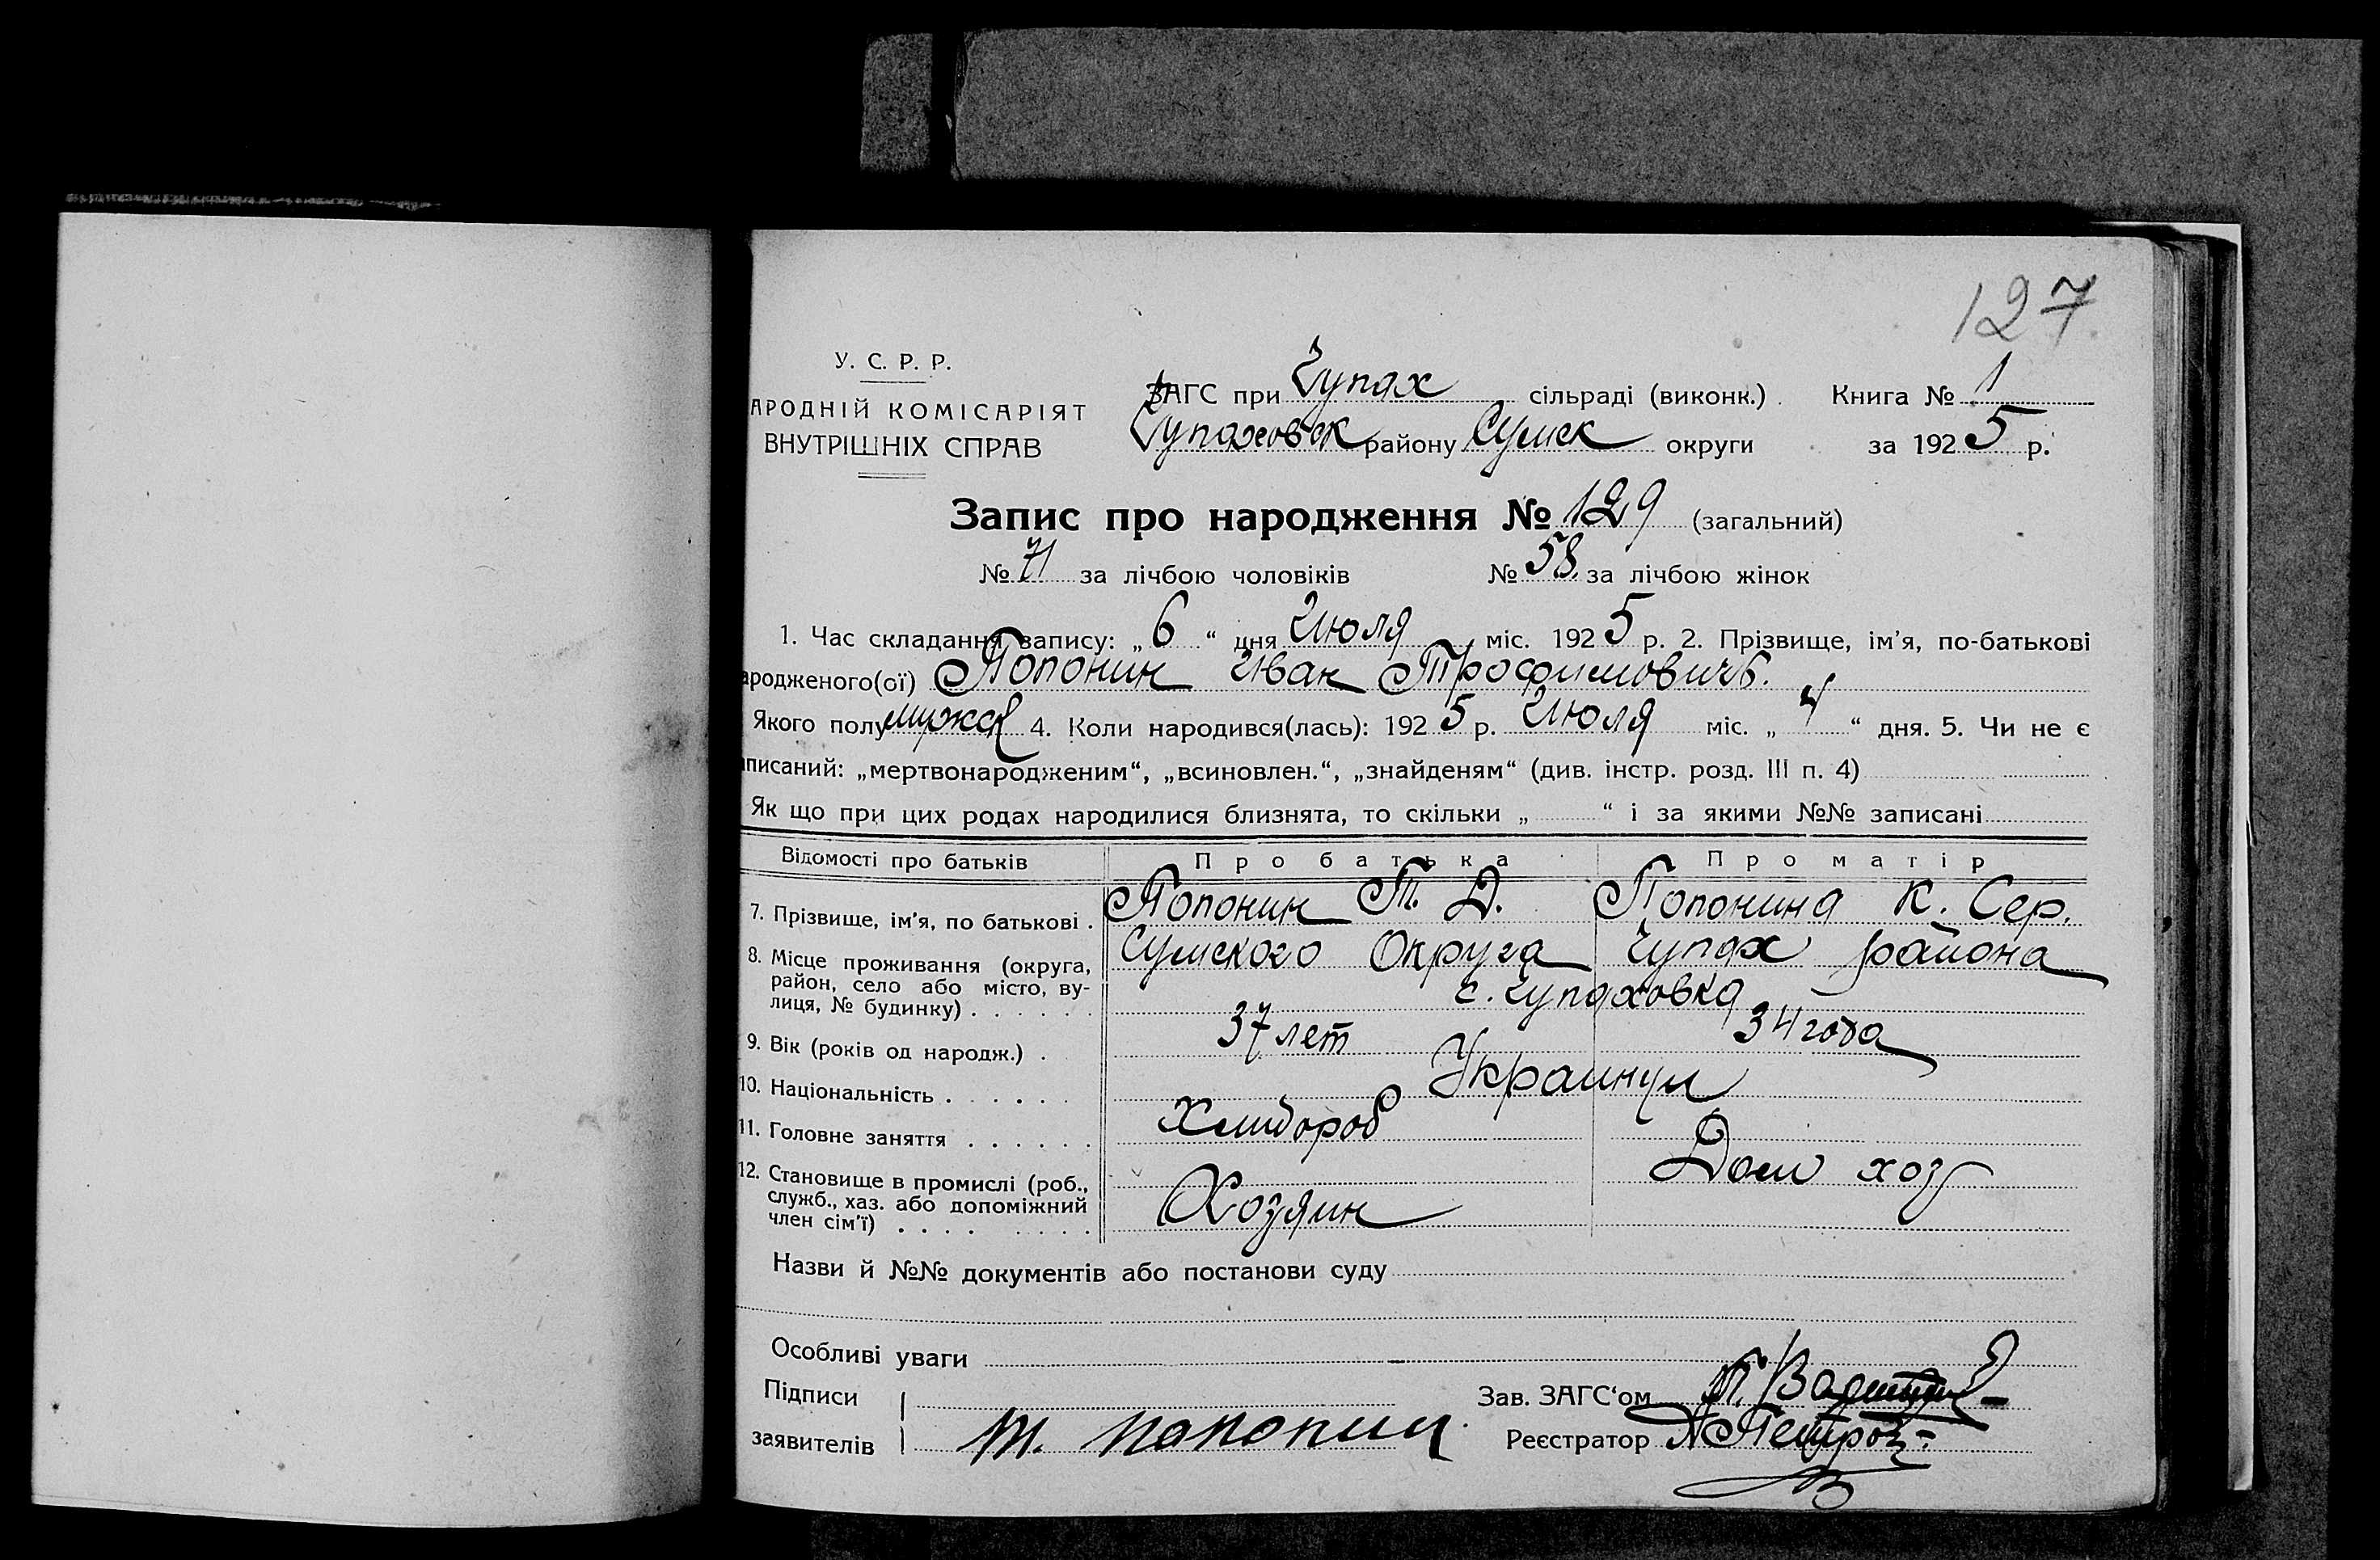 127
У. С. Р. Р.
АРОДНІЙ КОМІСАРІЯТ
ВНУТРІШНІХ СПРАВ
ЗАГС при Чупах сільраді (виконк.) Книга № 1
Чупаховск району Сумск округи за 1925 р.
Запис про народження № 129 (загальний)
№ 71 за лічбою чоловіків № 58 за лічбою жінок
1. Час складання запису: „ 6 “ дня Июля міс. 1925 р. 2. Прізвище, ім’я, по-батькові
ародженого(ої) Попонин Иван Трофимовичь.
Якого полу мужск 4. Коли народився(лась): 1925 р. Июля міс. „ 4 “ дня. 5. Чи не є
писаний: „мертвонародженим“, „всиновлен.“, „знайденям“ (див. інстр. розд. III п. 4)
Як що при цих родах народилися близнята, то скільки „ “ і за якими №№ записані
Відомості про батьків Про батька Про матір
7. Прізвище, ім’я, по батькові . Попонин Т. Д. Попонина К. Сер.
8. Місце проживання (округа, район, село або місто, ву- лиця, № будинку) . . . . . . Сумского Округа Чупах района
с. Чупаховка
9. Вік (років од народж.) . 37 лет 34 года
10. Національність . . . . . . Украинцы
11. Головне заняття . . . . . . Хлибороб
Дом хоз
12. Становище в промислі (роб., служб., хаз. або допоміжний член сім’ї) . . . . . . . . Хозяин
Назви й №№ документів або постанови суду
Особливі уваги
Підписи Зав. ЗАГС‘ом
заявителів т. попонин Реєстратор Петров